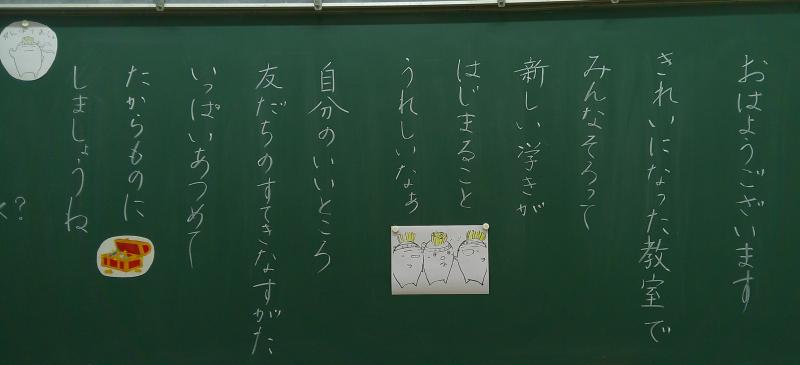 おはようございます
きれいになった教室で
みんなそろって
新しい学きが
はじまること
うれしいなぁ
自分のいいところ
友だちのすてきなすがた
いっぱいあつめて
たからものに
しましょうね